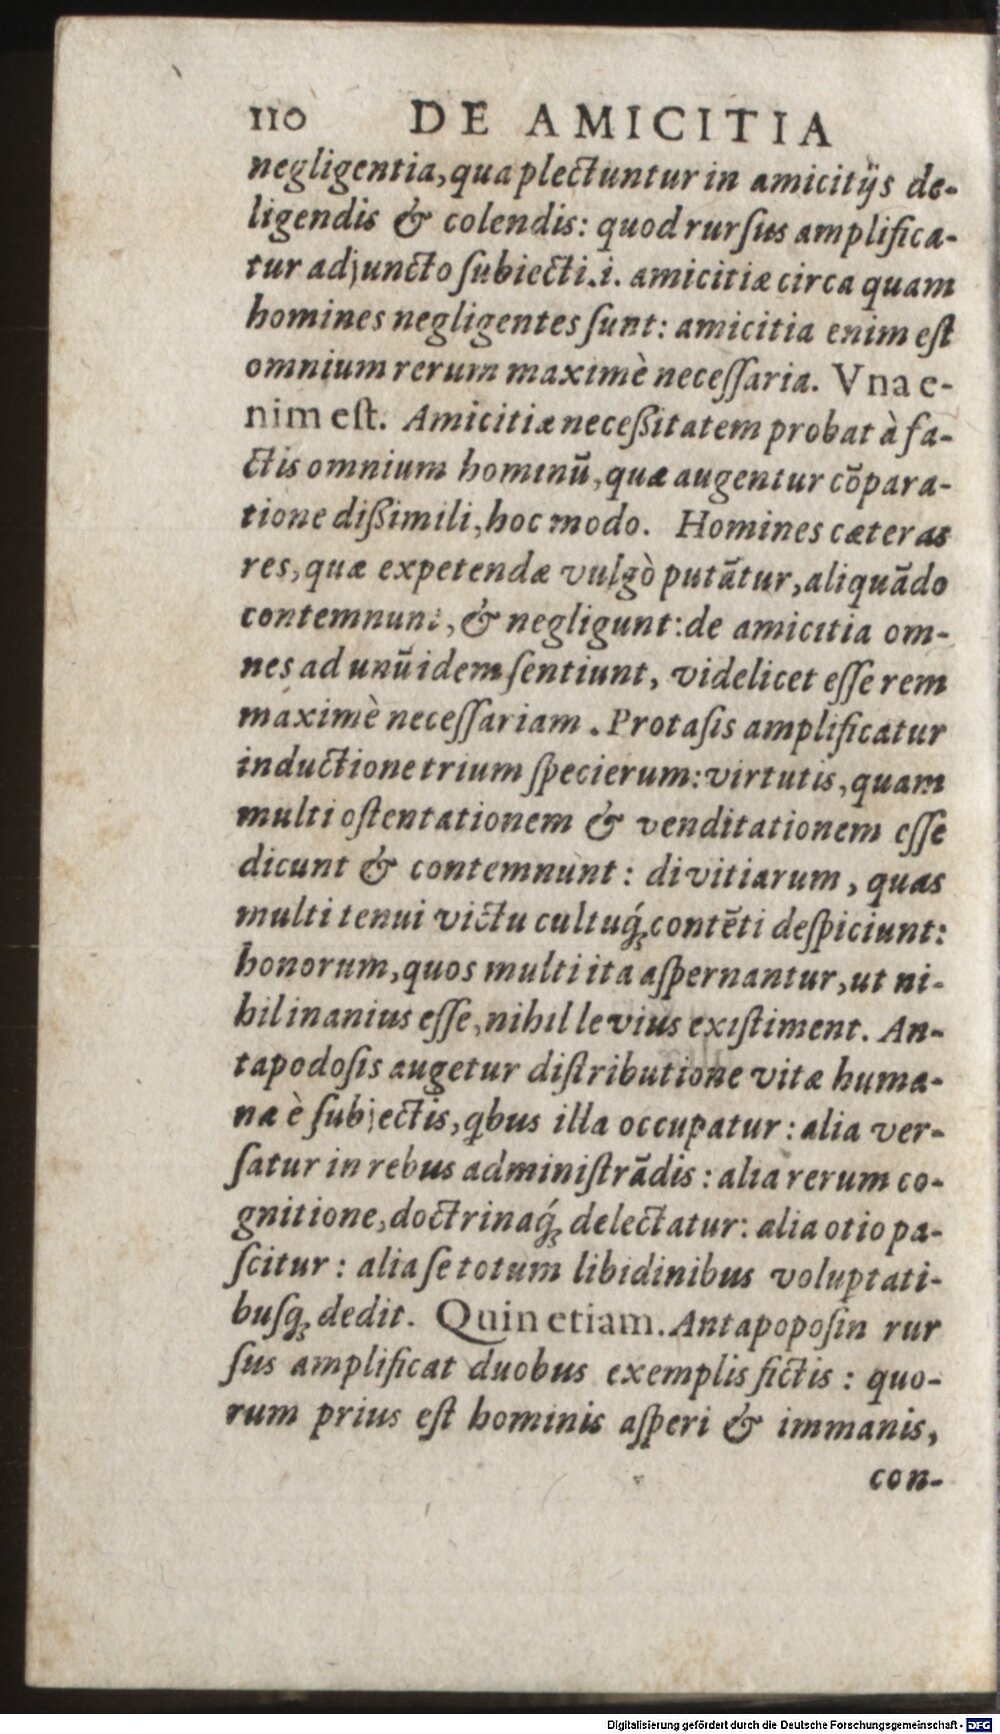 110 DE AMICITIA
negligentia, qua plectuntur in amicitijs de-
ligendis & colendis: quod rursus amplifica-
tur adjuncto subiecti .i. amicitiæ circa quam
homines negligentes sunt: amicitia enim est
omnium rerum maximè necessaria. Vna e-
nim est. Amicitiæ necessitatem probat à fa-
ctis omnium hominū, quæ augentur cōpara-
tione dissimili, hoc modo. Homines cæteras
res, quæ expetendæ vulgò putātur, aliquādo
contemnunt, & negligunt: de amicitia om-
nes ad unū idem sentiunt, videlicet esse rem
maximè necessariam. Protasis amplificatur
inductione trium specierum: virtutis, quam
multi ostentationem & venditationem esse
dicunt & contemnunt: divitiarum, quas
multi tenui victu cultuq́; contēti despiciunt:
honorum, quos multi ita aspernantur, ut ni-
hil inanius esse, nihil levius existiment. An-
tapodosis augetur distributione vitæ huma-
næ è subjectis, qbus illa occupatur: alia ver-
satur in rebus administrādis: alia rerum co-
gnitione, doctrinaq́; delectatur: alia otio pa-
scitur: alia se totum libidinibus voluptati-
busq; dedit. Quin etiam. Antapoposin rur
sus amplificat duobus exemplis fictis: quo-
rum prius est hominis asperi & immanis,
con-
Digitalisierung gefördert durch die Deutsche Forschungsgemeinschaft - DFG